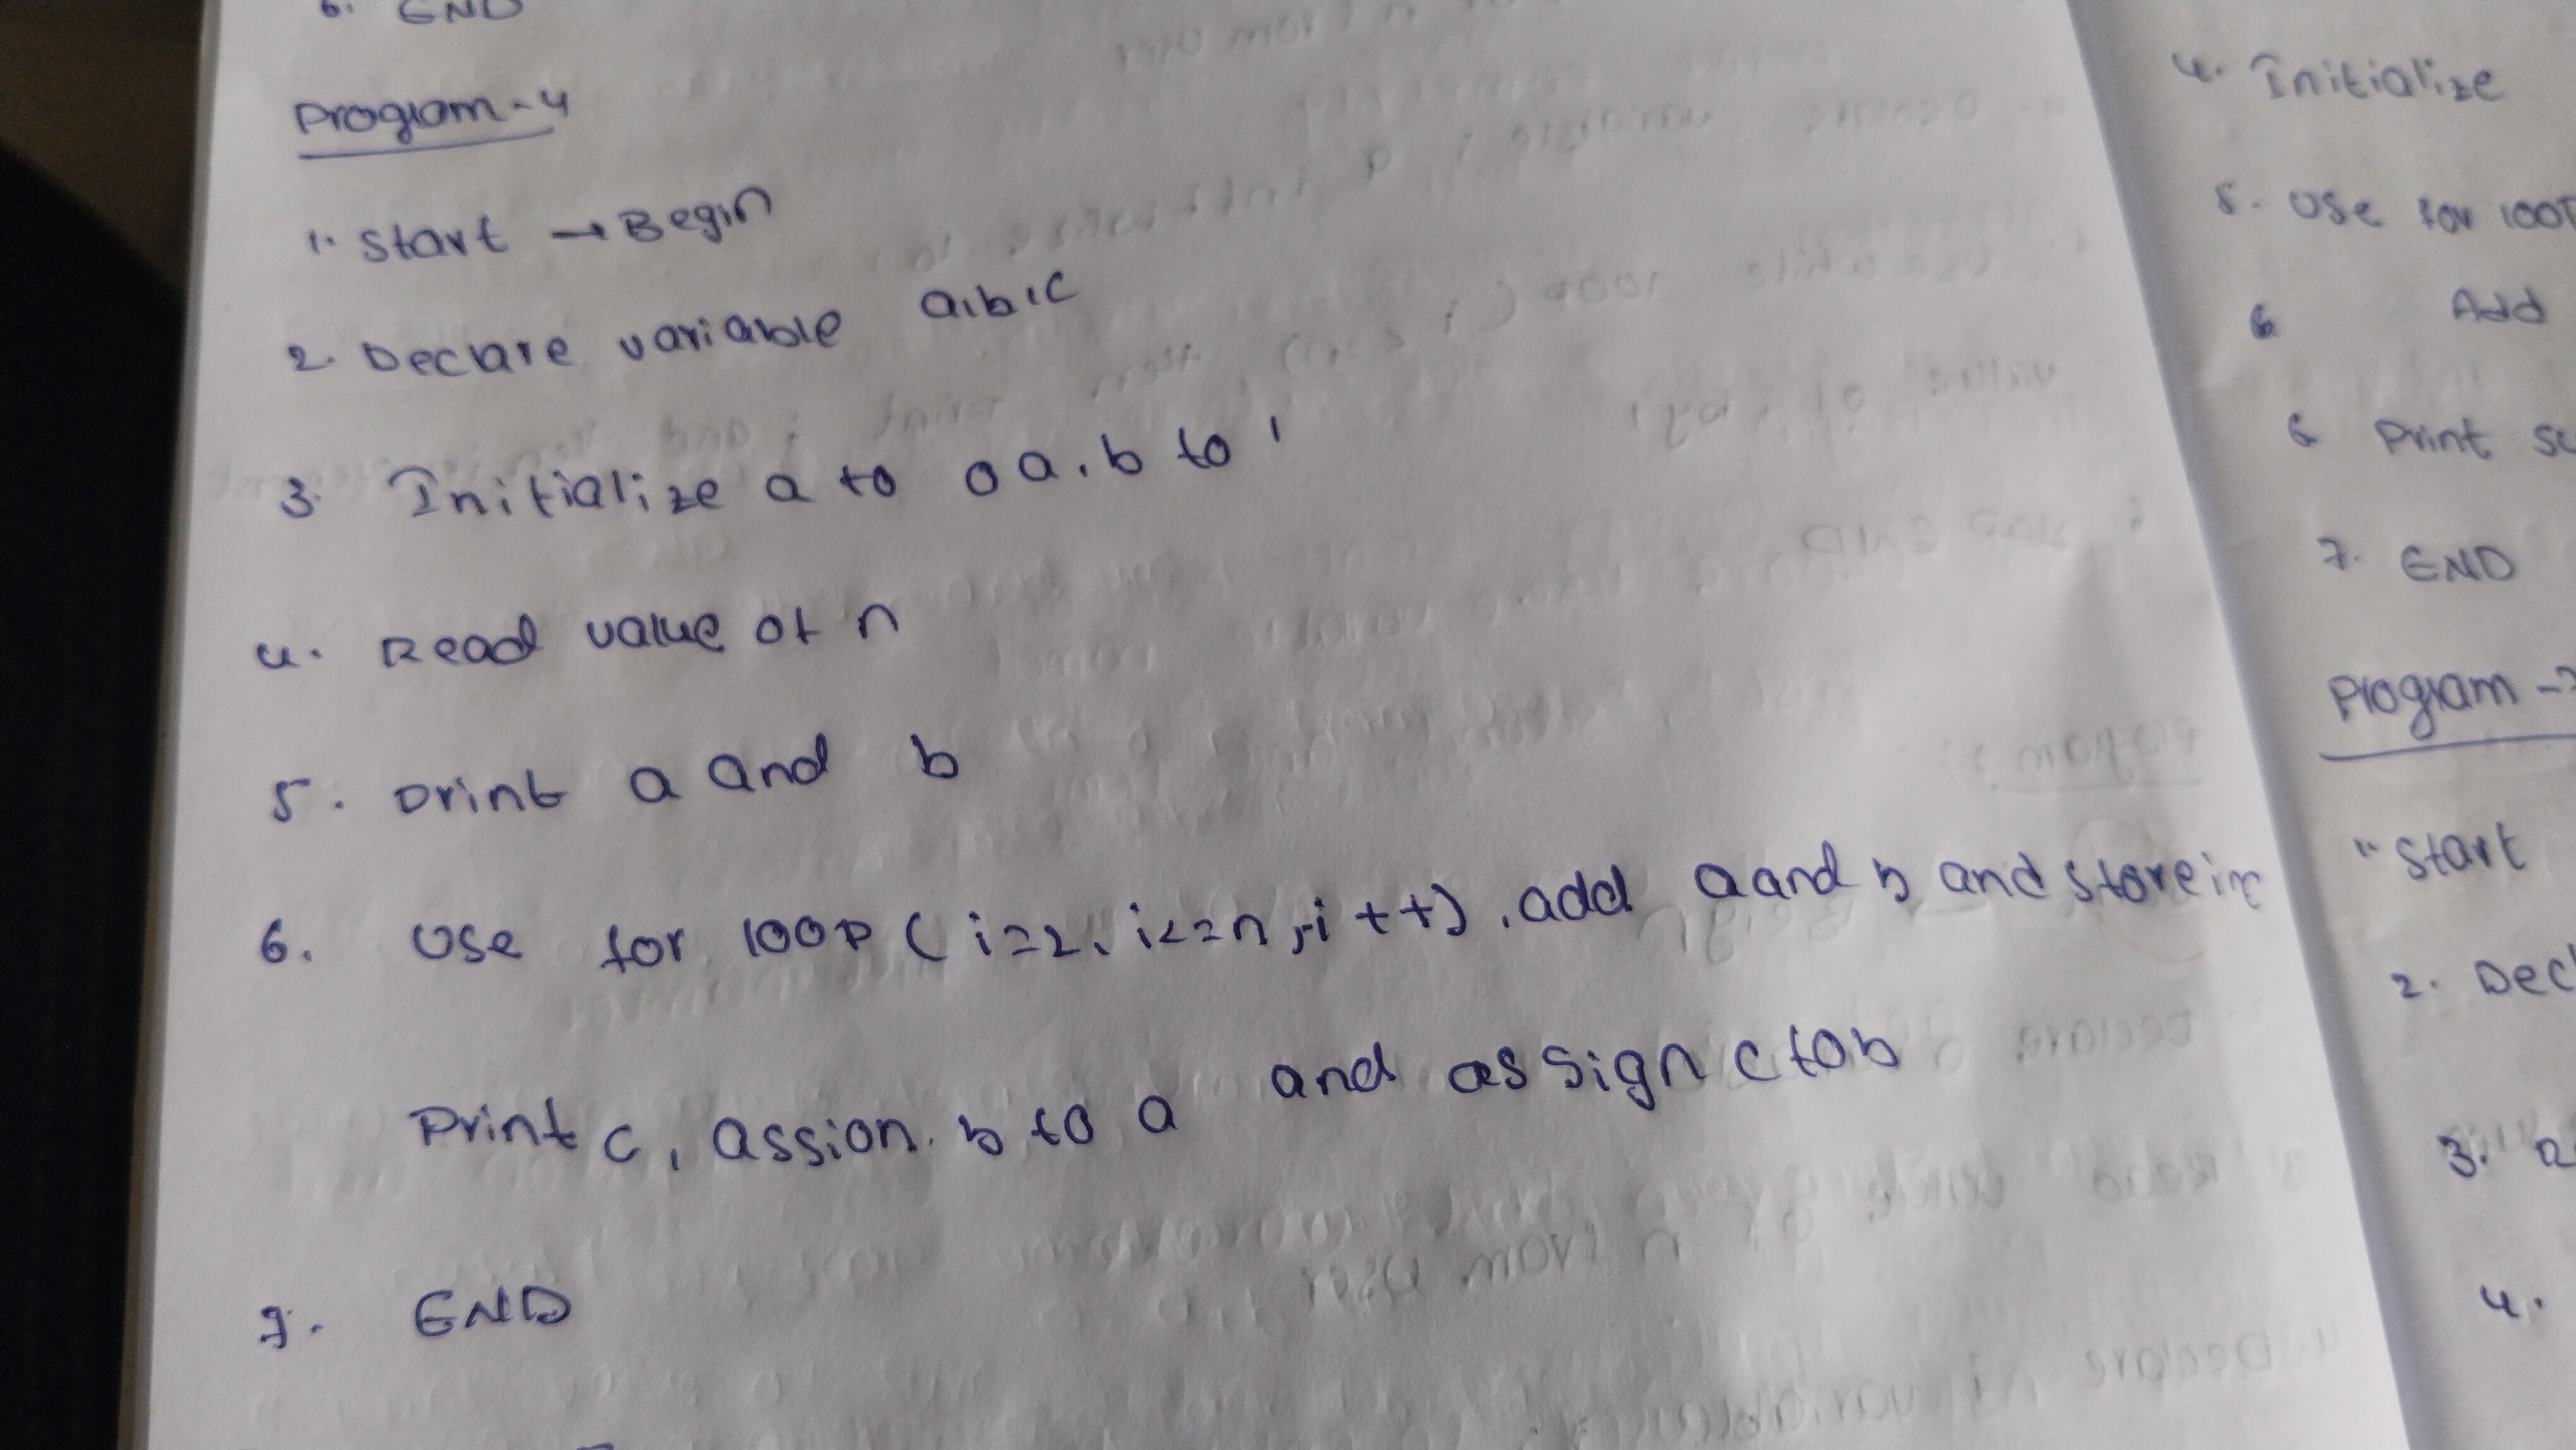 6. END
Program-4
1. Start → Begin
2. Declare variable a,b,c
3. Initialize a to 0 a, b to 1
4. Read value of n
5. print a and b
6. Use for loop (i=2, i<=n, i++), add a and b and store in
Print c, assion b to a and assign c to b
7. END
4. Initialize
5. Use for
6 Add
6 Print
7. END
Program -
1. Start
2.
3.
4.